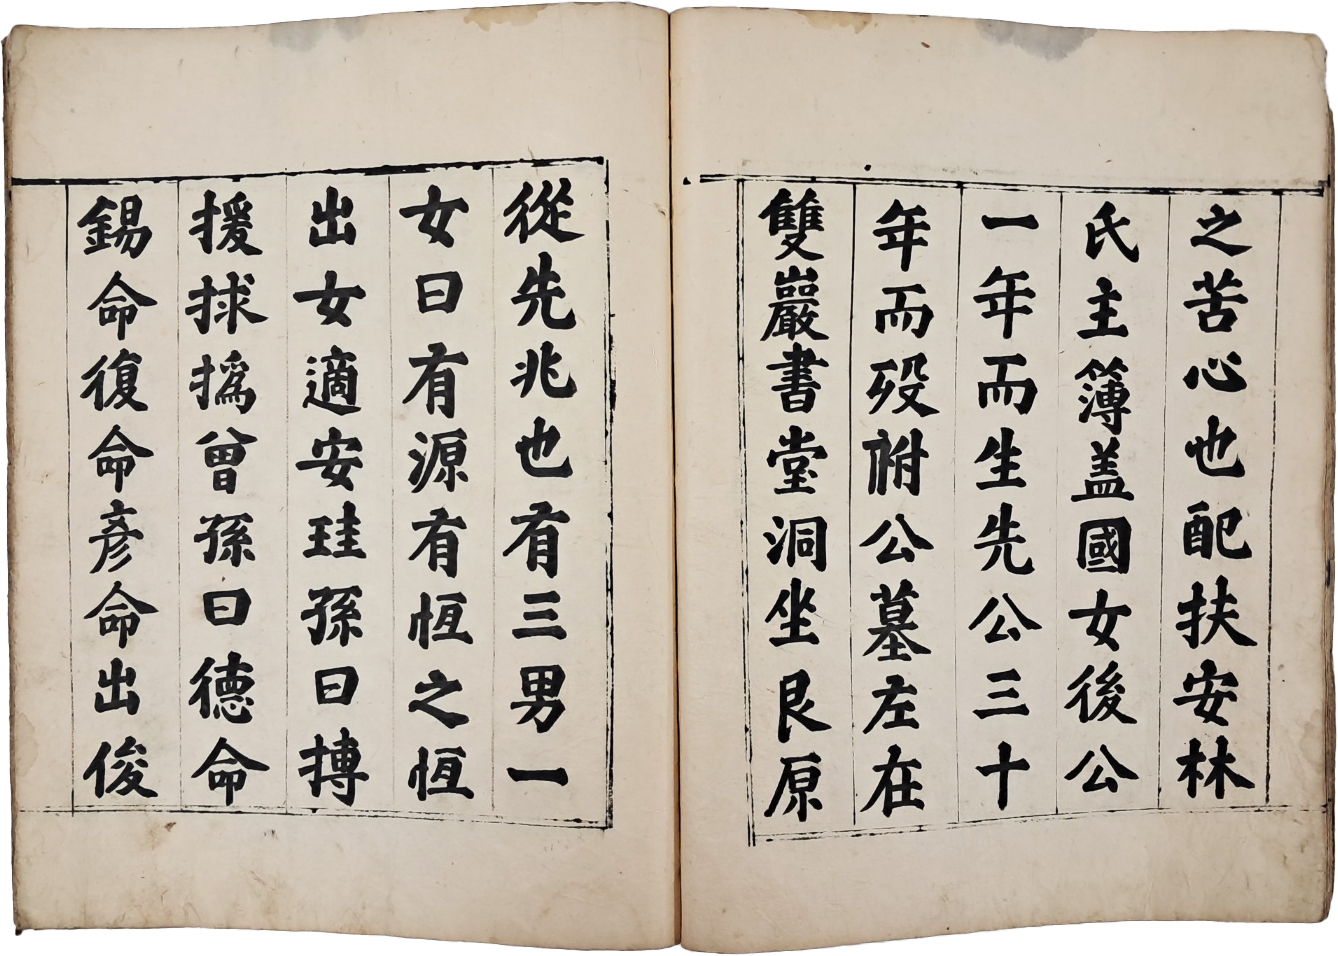 之苦心也配扶安林
氏主簿蓋國女後公
一年而生先公三十
年而歿祔公墓左在
雙巖書堂洞坐艮原
從先兆也有三男一
女曰有源有恆之恆
出女適安珪孫曰摶
援捄撝曾孫曰德命
錫命復命彥命出俊